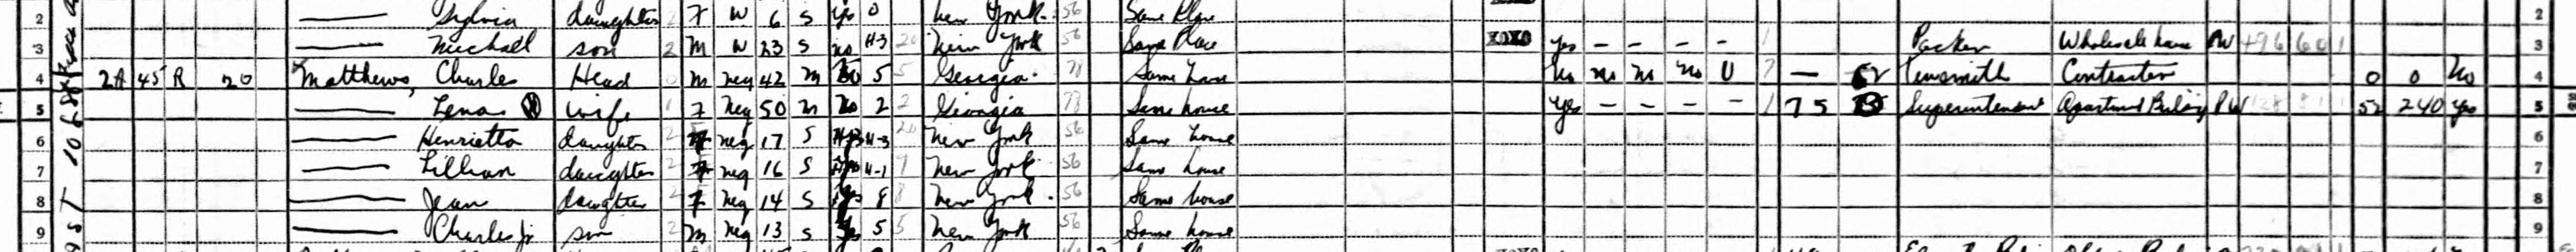 2 Sylvia daughter F W 6 S yes 0 New York 56 Same Place 2
3 Michael son 2 M W 23 S no H-3 20 New York 56 Same Place XOXO yes - - - - 1 Packer Wholesale PW 496 601 3
4 2A 45 R 20 Matthews, Charles Head 0 M neg 42 M no 5 5 Georgia 78 Same house no no no no U 7 — 52 Tinsmith Contractor 0 0 no 4
5 Lena wife 1 F Neg 50 M no 2 2 Georgia 78 Same house yes - - - - 1 75 Superintendent Apartment Building PW 52 240 yes 5
6 Henrietta daughter 2 F neg 17 S H-3 20 New York 56 Same house 6
7 Lillian daughter 2 F neg 16 S H-1 9 New York 56 Same house 7
8 Jean daughter 2 F neg 14 S yes 8 8 New York 56 Same house 8
9 Charles Jr son 2 M neg 13 S yes 5 5 New York 56 Same house 9